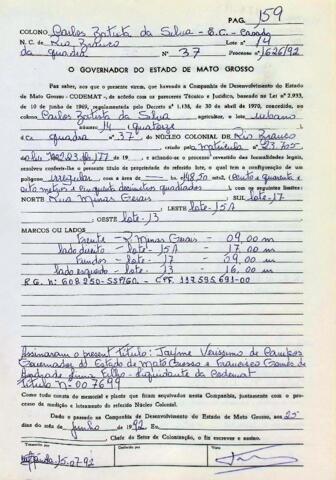 PAG. 159
COLONO Carlos Batista da Silva - B.C. - Casado
N. C. de Rio Branco Lote nº 14
da quadra Nº 37 Processo nº 1626/92
O GOVERNADOR DO ESTADO DE MATO GROSSO
Faz saber, aos que o presente virem, que havendo a Companhia de Desenvolvimento do Estado
de Mato Grosso - CODEMAT -, de acordo com os pareceres Técnico e Jurídico, baseado na Lei nº 2.933,
de 10 de junho de 1969, regulamentada pelo Decreto nº 1.138, de 30 de abril de 1970, concedido, ao colono,
Carlos Batista da Silva agricultor, o lote urbano
número 14 quatorze
quadra nº 37 NÚCLEO COLONIAL DE Rio Branco
criado pela matricula nº 23.705
de 19 , e achando-se o processo revestido das formalidades legais,
resolveu conferir-lhe o presente título de propriedade do referido lote, o qual tem a configuração de um
polígono irregular com a área de 148,50 mts2. (cento e quarenta e
oito metros e cinquenta decimetros quadrados) com os seguintes limites:
NORTE Rua Minas Gerais SUL lote-17
LESTE lote-15A
, OESTE lote-13
MARCOS OU LADOS
Frente - R. Minas Gerais - 09,00 m
lado direito - lote - 15A - 17,00 m
Fundos - lote - 17 - 09,00 m
lado esquerdo - lote - 13 - 16,00 m
R.G. nº 608.250-SSP/GO - CPF. 117.595.691-00
Assinaram o present Título: Jayme Verissimo de Campos
Governador do Estado de Mato Grosso e Francisco Gomes de
Andrade Lima Filho - Liquidante da Codemat
Titulo Nº 007699
Como tudo consta do memorial e planta que foram arquivados nesta Companhia, juntamente com o pro-
cesso da medição e loteamento do referido Núcleo Colonial.
Dado e passado na Companhia de Desenvolvimento do Estado de Mato Grosso, aos 25
dias do mês de junho de 1992 Eu,
Chefe do Setor de Colonização, o fiz escrever e assino.
15.07.92